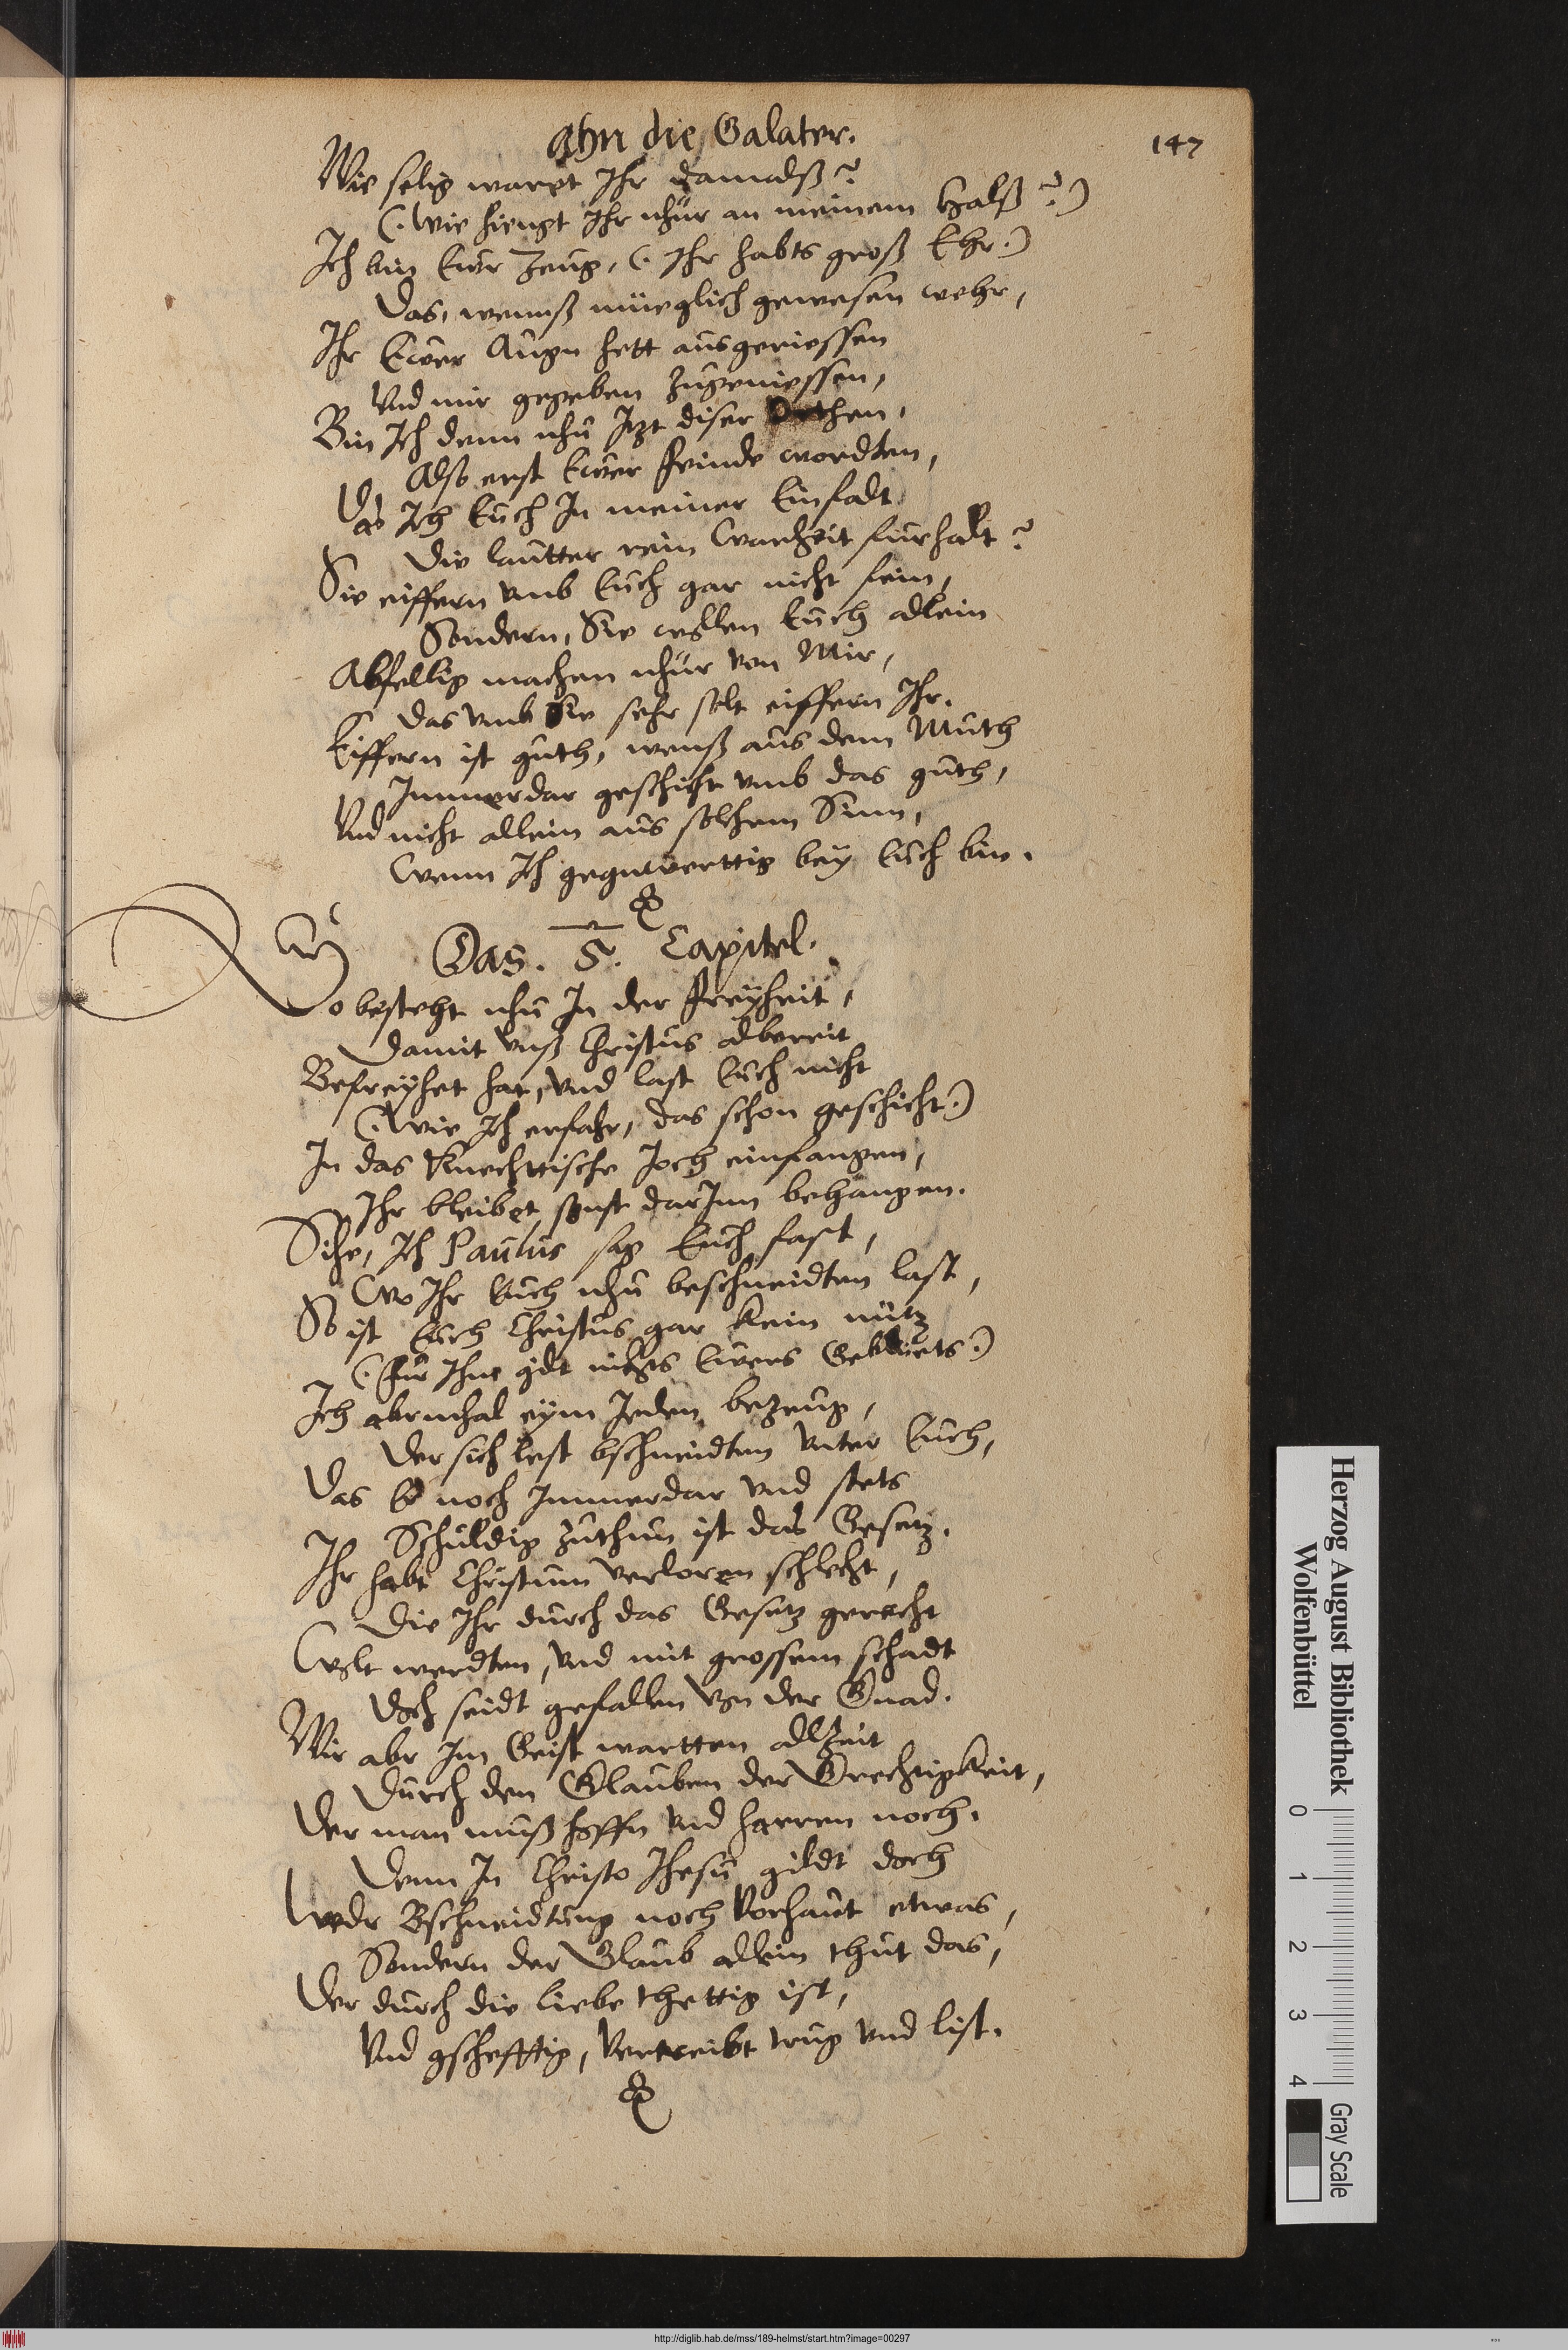 Ahn die Galater.
147
Wie selig waret Ihr damalß?
(. Wie hiengt Ihr nhür an meinem Halß?)
Ich bin Ewr Zeug, (. Ihr habts groß Ehr.)
Das, wennß müeglich gewesen wehr,
Ihr Ewer Augn hett ausgeriessen
Vnd mir gegeben Zugeniessen,
Bin Ich denn nhu Itzt diser Orthen,
Also erst Ewer Feinde wordten,
Das Ich Euch In meiner Einfalt
Die lautter rein Warheit fürhalt?
Sie eiffern vmb Euch gar nicht fein,
Sondern, Sie wollen Euch allein
Abfellig machen nhür von Mir,
Das vmb Sie sehr solt eiffern Ihr.
Eiffern ist guth, wenß aus dem Muth
Immerdar geschicht vmb das guth,
Vnd nicht allein aus solchem Sinn,
Wenn Ich gegnwerttig bey Euch bin.
Das. 5. Capitel.
So besteht nhu In der Freyheit,
Damit vnß Christus albereit
Befreyhet hat, vnd last Euch nicht
(. Wie Ich erfahr, das schon geschicht.)
In das Knechttische Joch einfangen,
Ihr bleibet sonst darInn behangen.
Sihe, Ich Paulus sag Euch fast,
Wo Ihr Euch nhu beschneidten last,
So ist Euch Christus gar kein nütz
(. Für Ihne gilt nichts Ewers)
Ich abrmhal eym Jeden bezeug,
Der sich lest bschneidten vnter Euch,
Das Er noch Immerdar vnd stets
Schuldig zuthun ist das Gesetz.
Ihr habt Christum verloren schlecht,
Die Ihr durch das Gesetz gerecht
Wolt werdten, vnd mit grossem schadt
Doch seidt gefallen von der Gnad.
Wir abr Im Geist wartten allZeit
Durch den Glauben der Grechtigkeit,
Der man muß hoffn vnd harren noch.
Denn In Christo Ihesu gildt doch
Wedr Bschneidtung noch Vorhaut etwas,
Sondern der Glaub allein thut das,
Der durch die liebe thettig ist,
Vnd gschefftig, Vertreibt trug vnd list.
Herzog August Bibliothek
Wolfenbüttel
0 1 2 3 4
Gray Scale
http://diglib.hab.de/mss/189-helmst/start.htm?image=00297